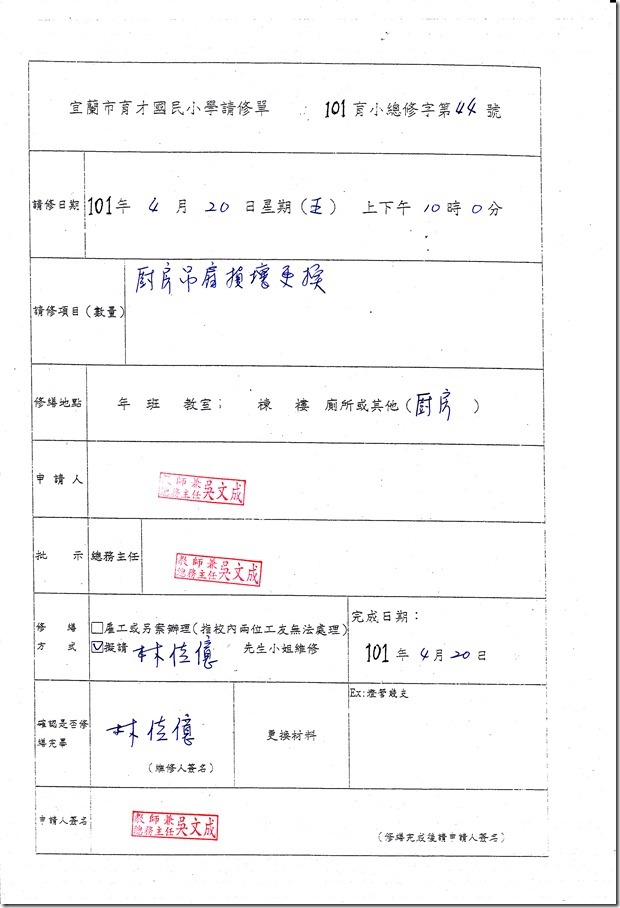 宜蘭市育才國民小學請修單 101育小總修字第44號
請修日期 101年 4 月 20 日星期(五) 上下午 10時 0分
廚房吊扇損壞更換
請修項目(數量)
修繕地點 年 班 教室; 棟 樓 廁所或其他(廚房 )
申請人 教師兼總務主任吳文成
批 示 總務主任 教師兼總務主任吳文成
完成日期:
修 繕 □雇工或另案辦理(指校內兩位工友無法處理)
方 式 ☑擬請 林佳億 先生小姐維修
101年 4月20日
Ex:燈管幾支
確認是否修繕完畢 林佳億 更換材料
(維修人簽名)
申請人簽名 教師兼總務主任吳文成
(修繕完成後請申請人簽名)